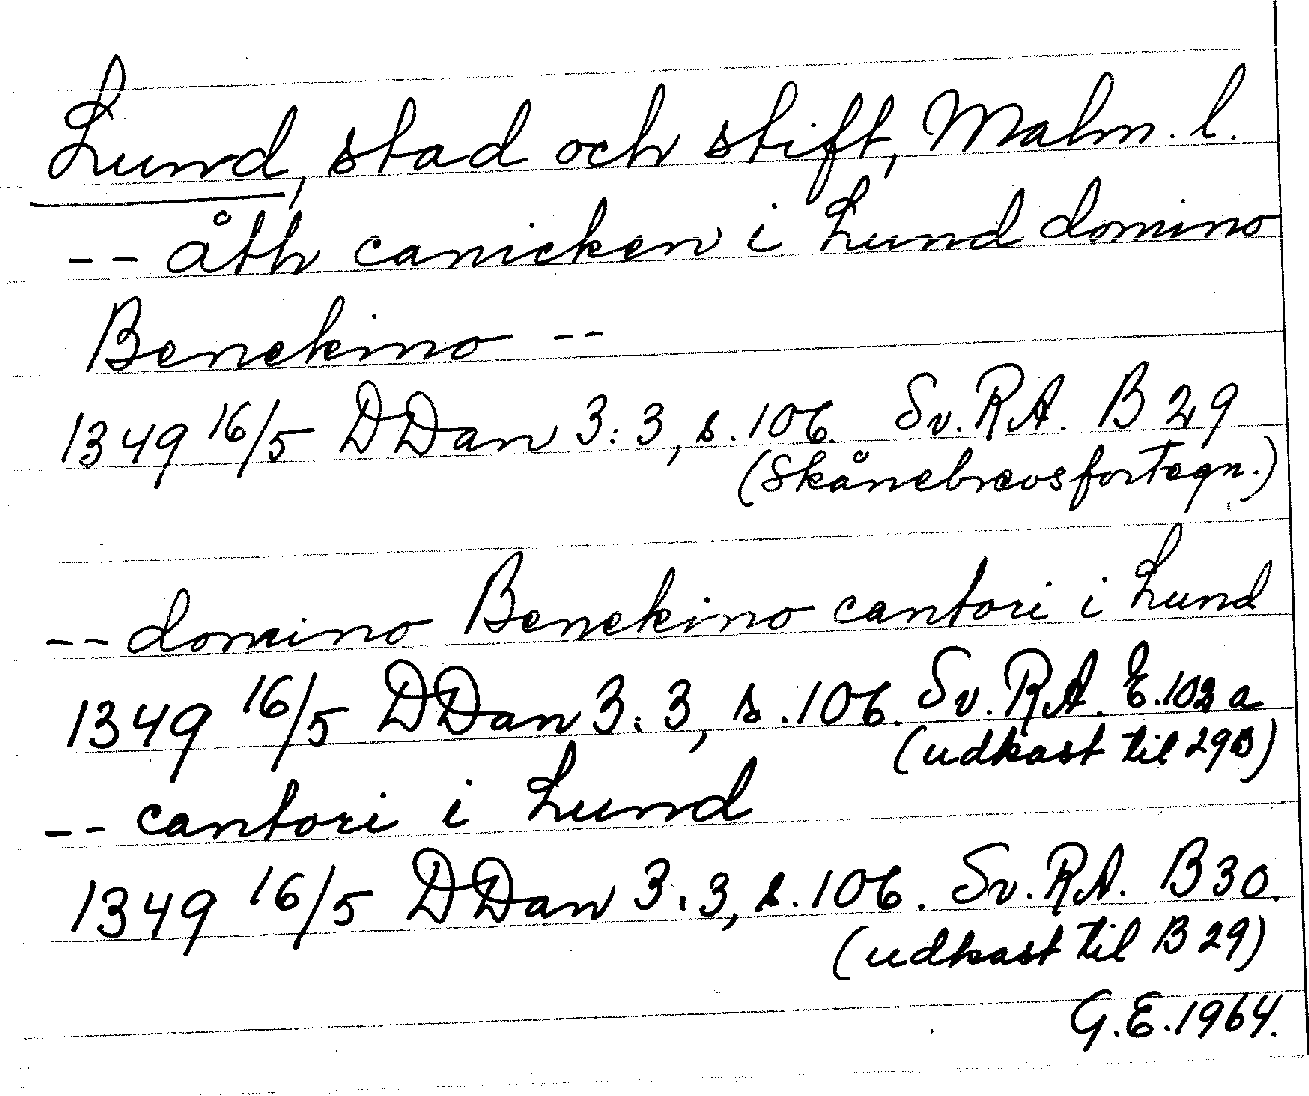 Lund, stad och stift, Malm. l.
-- åth canicken i Lund domino
Benekino --
1349 16/5 DDan 3:3, s.106. Sv. RA. B 29
(Skånebrevsfortegn.)
-- domino Benekino cantori i Lund
1349 16/5 DDan 3:3, s.106. Sv. RA. E.102a
(udkast til 29B)
-- cantori i Lund
1349 16/5 DDan 3:3, s.106. Sv. RA. B30.
(udkast til B 29)
G.E.1964.